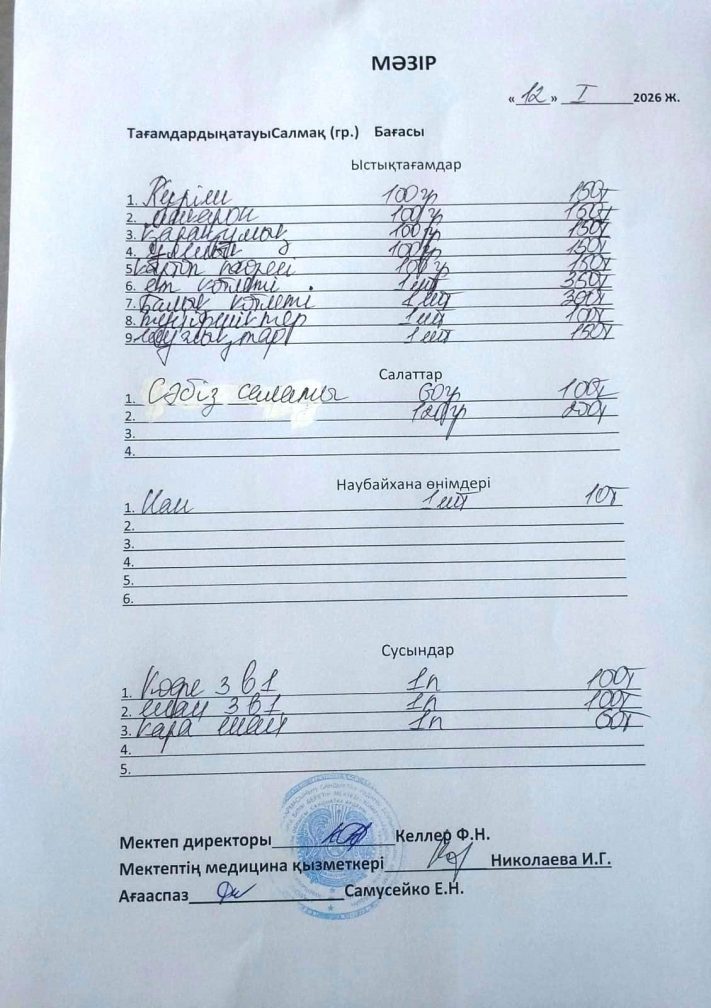 МӘЗІР
«12» I 2026 Ж.
ТағамдардыңатауыСалмақ (гр.) Бағасы
Ыстықтағамдар
1. Күріш 100гр 150т
2. макарон 100гр 150т
3. Қарақұмық 100гр 150т
4. 100гр 150т
5. картоп пюресі 100гр 150т
6. ет котлеті 1 шт 350т
7. Балық котлеті 1 шт 300т
8. тефтельдер 1 шт 100т
9. 1 шт 150т
Салаттар
1. Сәбіз салаты 60гр 100т
2. 120гр 200т
3.
4.
Наубайхана өнімдері
1. Нан 1 шт 10т
2.
3.
4.
5.
6.
Сусындар
1. Кофе 3 в 1 1п 100т
2. шай 3 в 1 1п 100т
3. қара шай 1п 60т
4.
5.
Мектеп директоры Келлер Ф.Н.
Мектептің медицина қызметкері Николаева И.Г.
Ағааспаз Самусейко Е.Н.